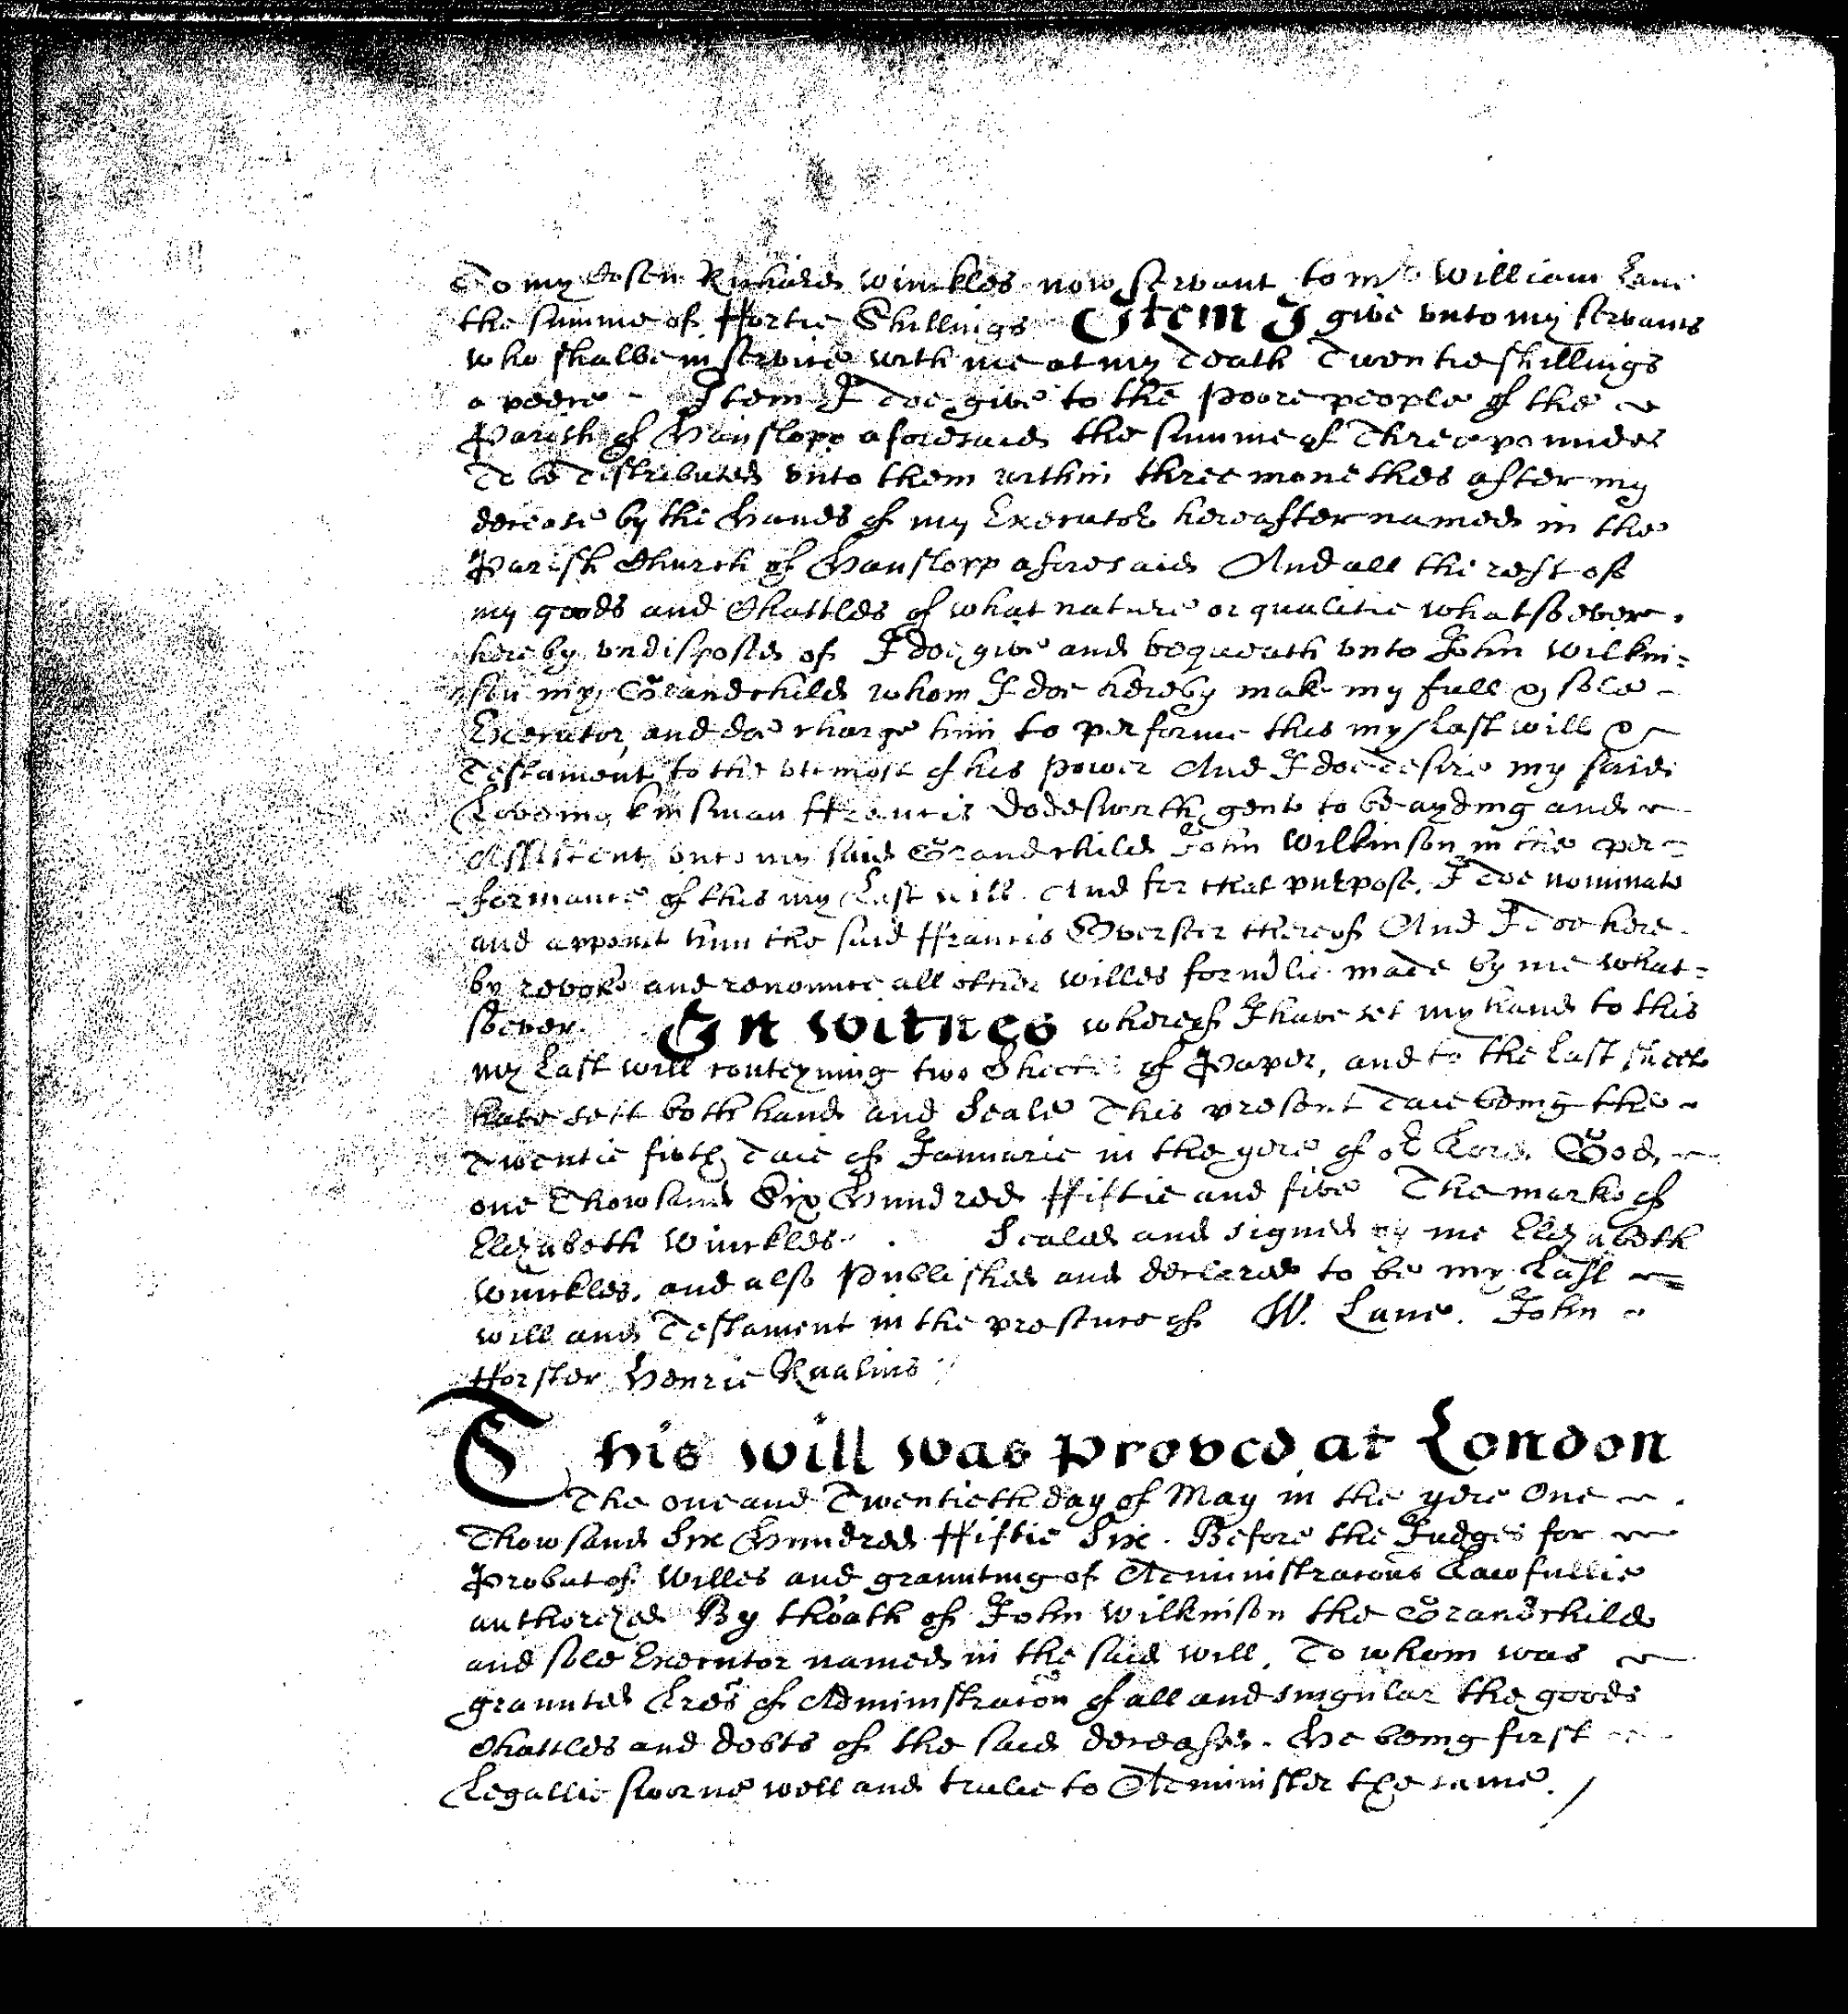 To my Cosen Richard Winckles now servant to mr William Lane
the summe of ffortie Shillings Item I give vnto my servants
who shalbe in service with me at my death Twentie shillings
a peece - Item I doe give to the Poore people of the
Parish of Hanslopp aforesaid the summe of Three poundes
To be distributed vnto them within three monethes after my
decease by the hands of my Executor hereafter named in the
Parish Church of Hanslopp aforesaid And all the rest of
my goods and Chattles of what nature or qualitie whatsoever.
hereby vndisposed of I doe give and bequeath vnto John Wilkin=
son my Grandchild whom I doe hereby make my full & sole -
Executor, and doe charge him to performe this my last will &
Testament to the vtmost of his power And I doe desire my said
Loveing kinsman ffrancis Dodesworth gent to be ayding and
Assistent vnto my said Grandchild John Wilkinson in the per=
formance of this my Last will. And for that purpose, I doe nominate
and appoint him the said ffrancis Overseer thereof And I doe here
by revoke and renounce all other willes formlie made by me what=
soever. In witnes whereof I have set my hand to this
my Last will conteyning two Sheetes of Paper, and to the Last sheete
have sett both hand and Seale This present daie being the
Twentie sixth daie of Januarie in the yere of or Lord God
one Thowsand Six Hundred ffiftie and five The marke of
Elizabeth Winckles. Sealed and signed by me Elizabeth
Winckles, and also Published and declared to be my Last
will and Testament in the presence of W. Lane. John
fforster Henrie Rawlins
This will was proved at London
The one and Twentieth day of May in the yere One
Thowsand Six Hundred ffiftie Six. Before the Judges for
Probat of Willes and graunting of Administracons Lawfullie
authorized By thoath of John Wilkinson the Grandchild
and sole Executor named in the said will, To whom was
graunted Lres of Administracon of all and singular the goods
Chattles and debts of the said deceased. He being first
Legallie sworne well and trulie to Administer the same. /